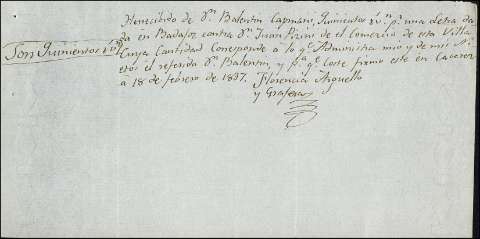 He recibido de Dn. Balentin Capmani, Quinientos rs. vn. pr. una Letra da
da en Badajoz contra Dn. Juan de el Comercio de esta Villa
Son Quinientos rs. vn.
Cuya Cantidad Corresponde a lo qe. Administra mio y de mis Ni
etos el referido Dn. Balentin, y pa. qe. Coste firmo este en Caceres
a 18 de febrero de 1837. Florencia Arguello
y Grafera